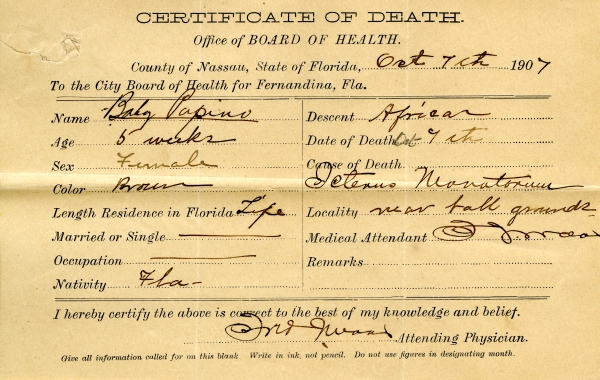 CERTIFICATE OF DEATH.
Office of BOARD OF HEALTH.
County of Nassau, State of Florida, Oct 7th 1907
To the City Board of Health for Fernandina, Fla.
Name Baby Papino
Age 5 weeks
Sex Female
Color Brown
Length Residence in Florida Life
Married or Single
Occupation
Nativity Fla-
Descent African
Date of Death Oct 7th
Cause of Death
Icterus Neonatorum
Locality near ball grounds
Medical Attendant
Remarks
I hereby certify the above is correct to the best of my knowledge and belief.
Attending Physician.
Give all information called for on this blank Write in ink, not pencil. Do not use figures in designating month.